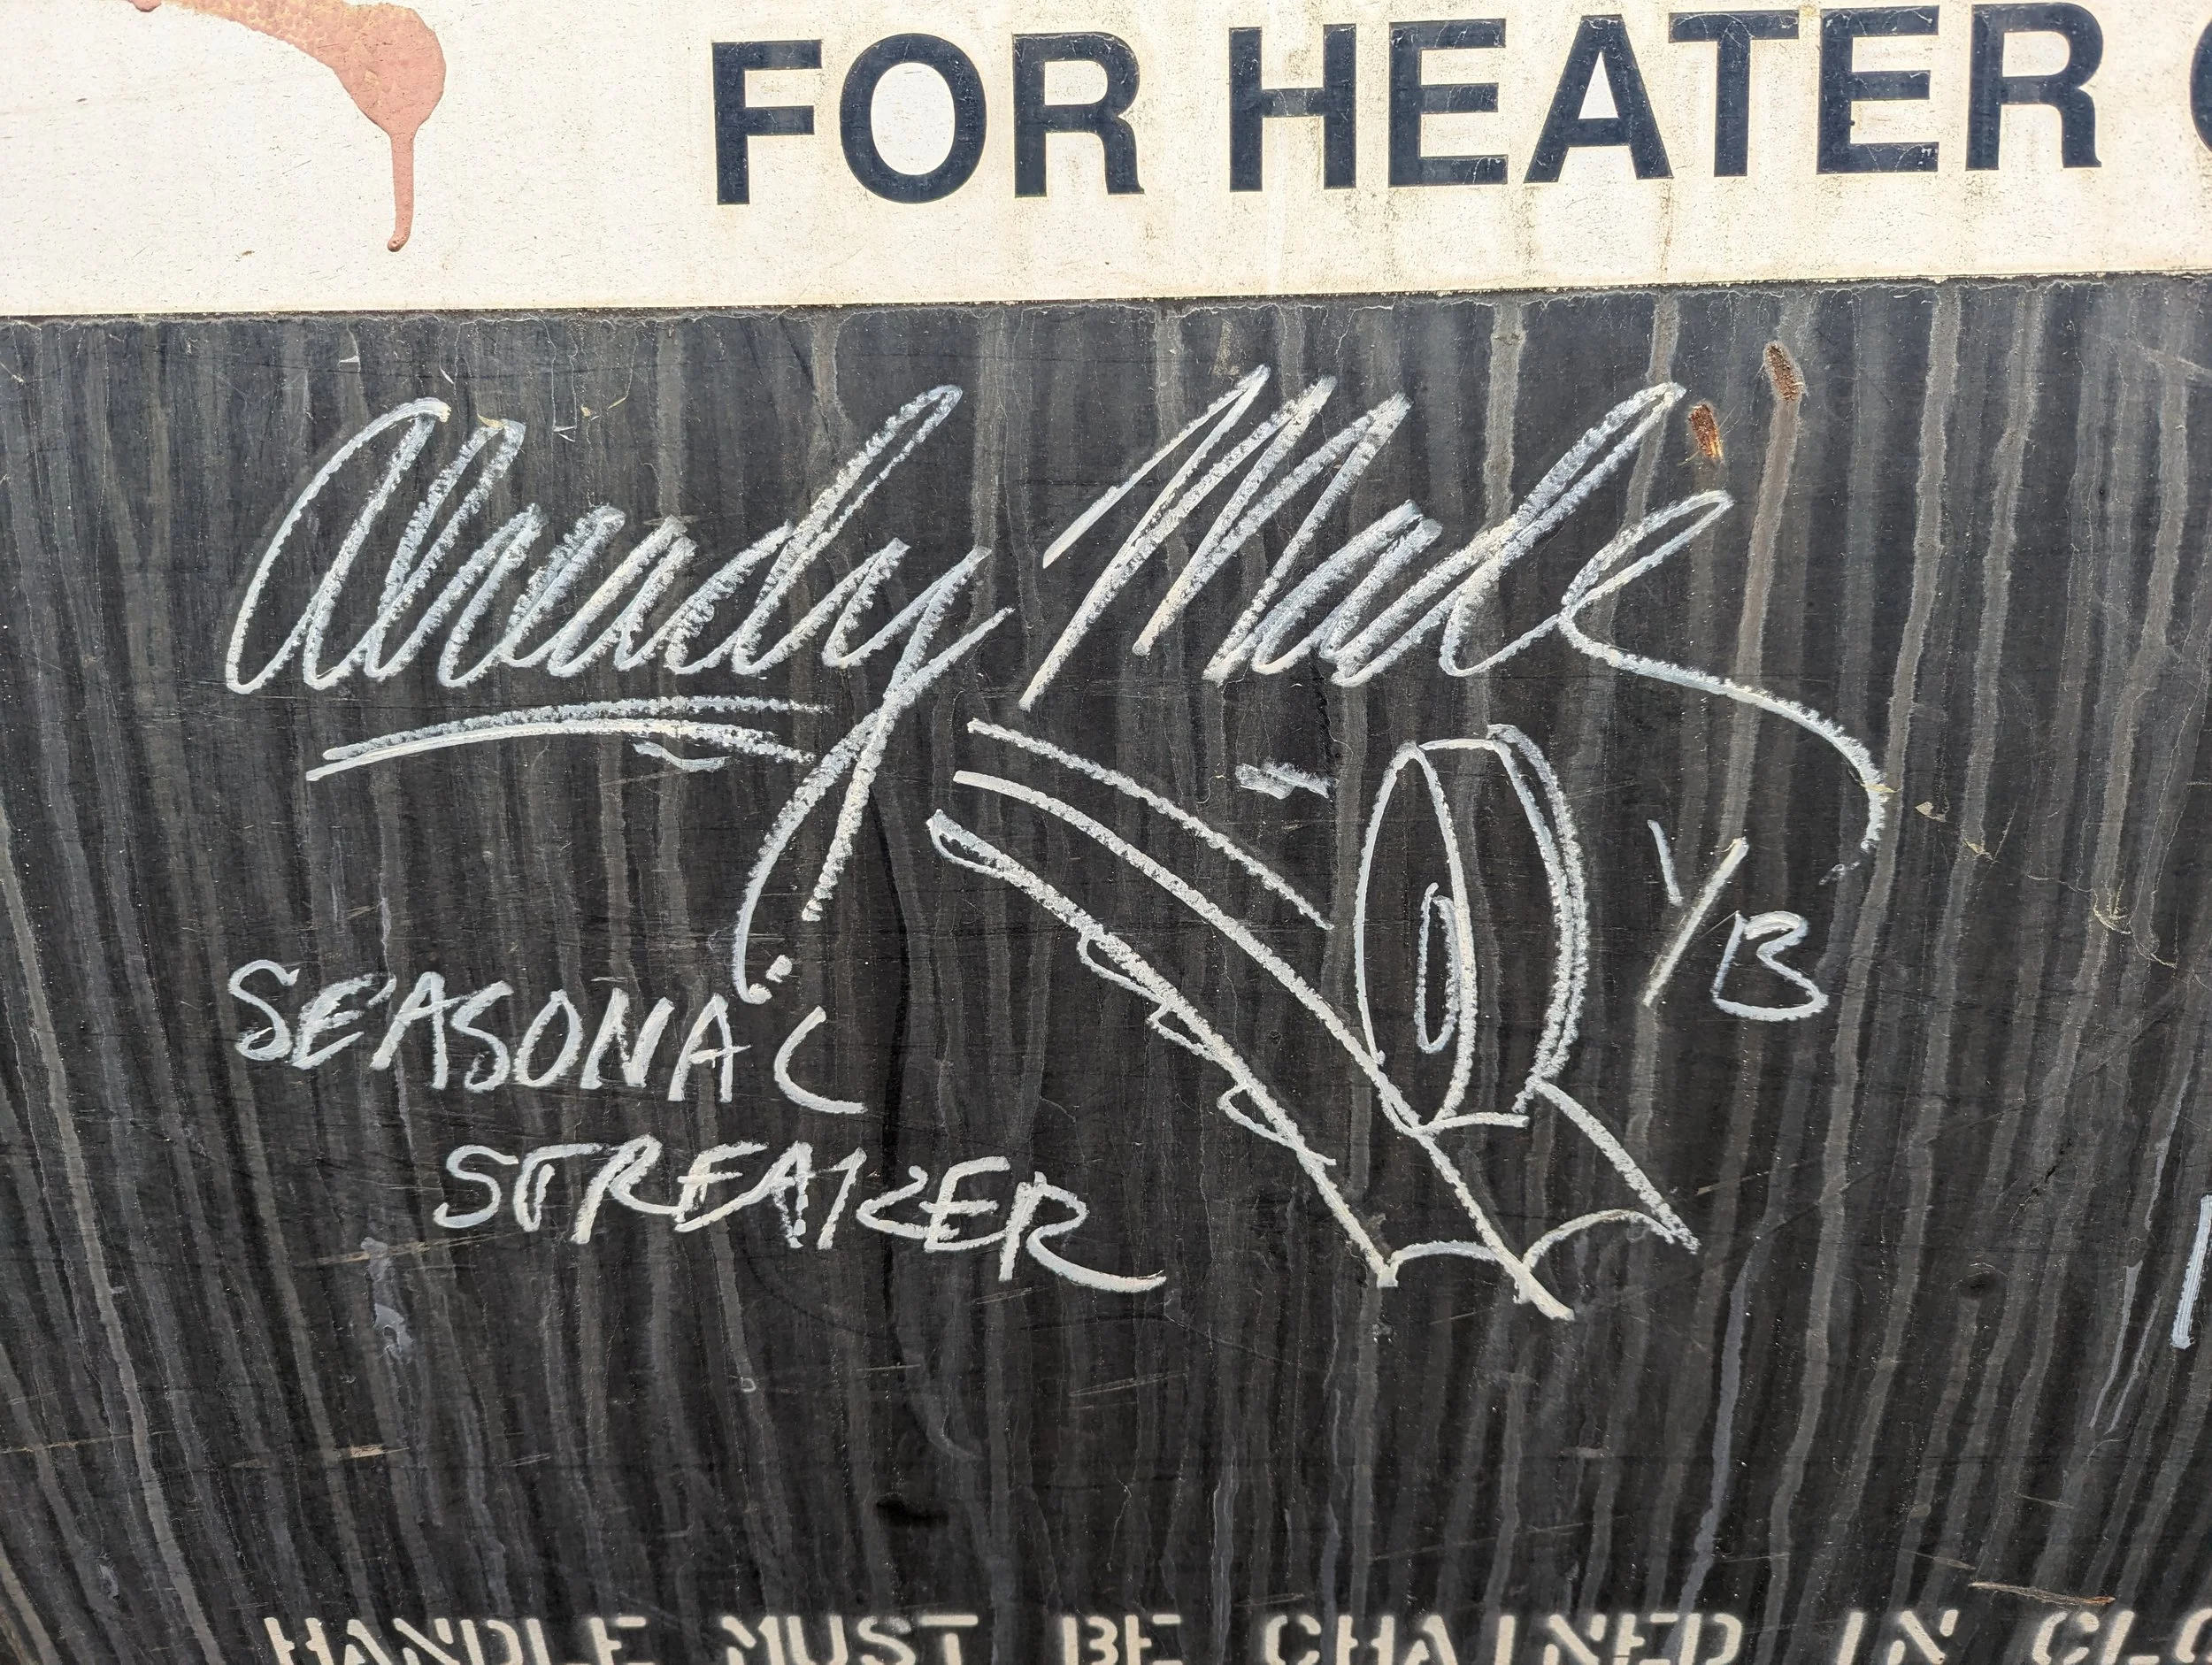 FOR HEATER
already Made
YB
SEASONAL
STREAKER
HANDLE MUST BE CHAINED IN CLO